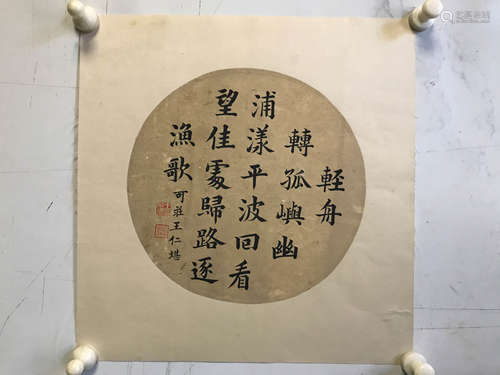 輕舟
轉孤嶼幽
浦漾平波回看
望佳處歸路逐
漁歌
可莊王仁堪